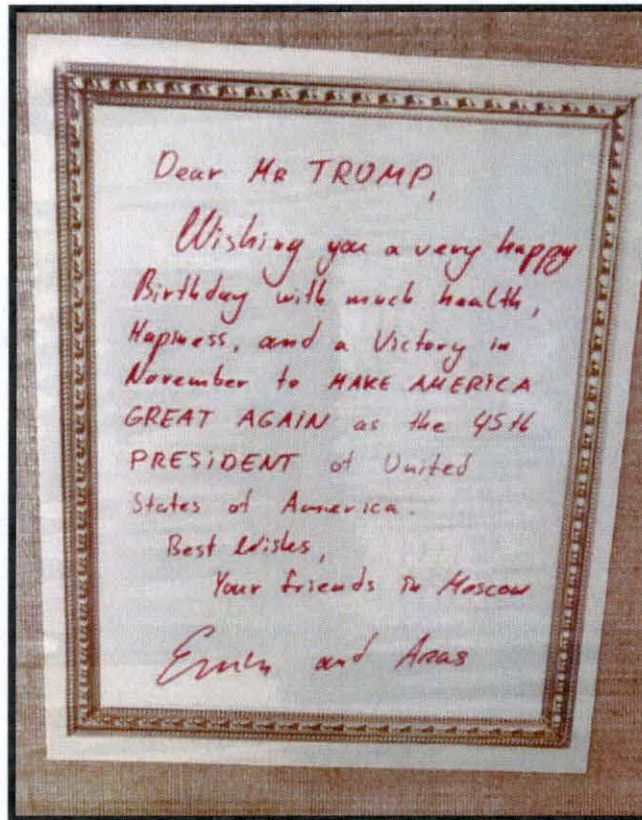 Dear MR TRUMP,
Wishing you a very happy
Birthday with much health,
Hapiness, and a Victory in
November to MAKE AMERICA
GREAT AGAIN as the 45th
PRESIDENT of United
States of America.
Best Wishes,
Your friends in Moscow
Emin and Aras